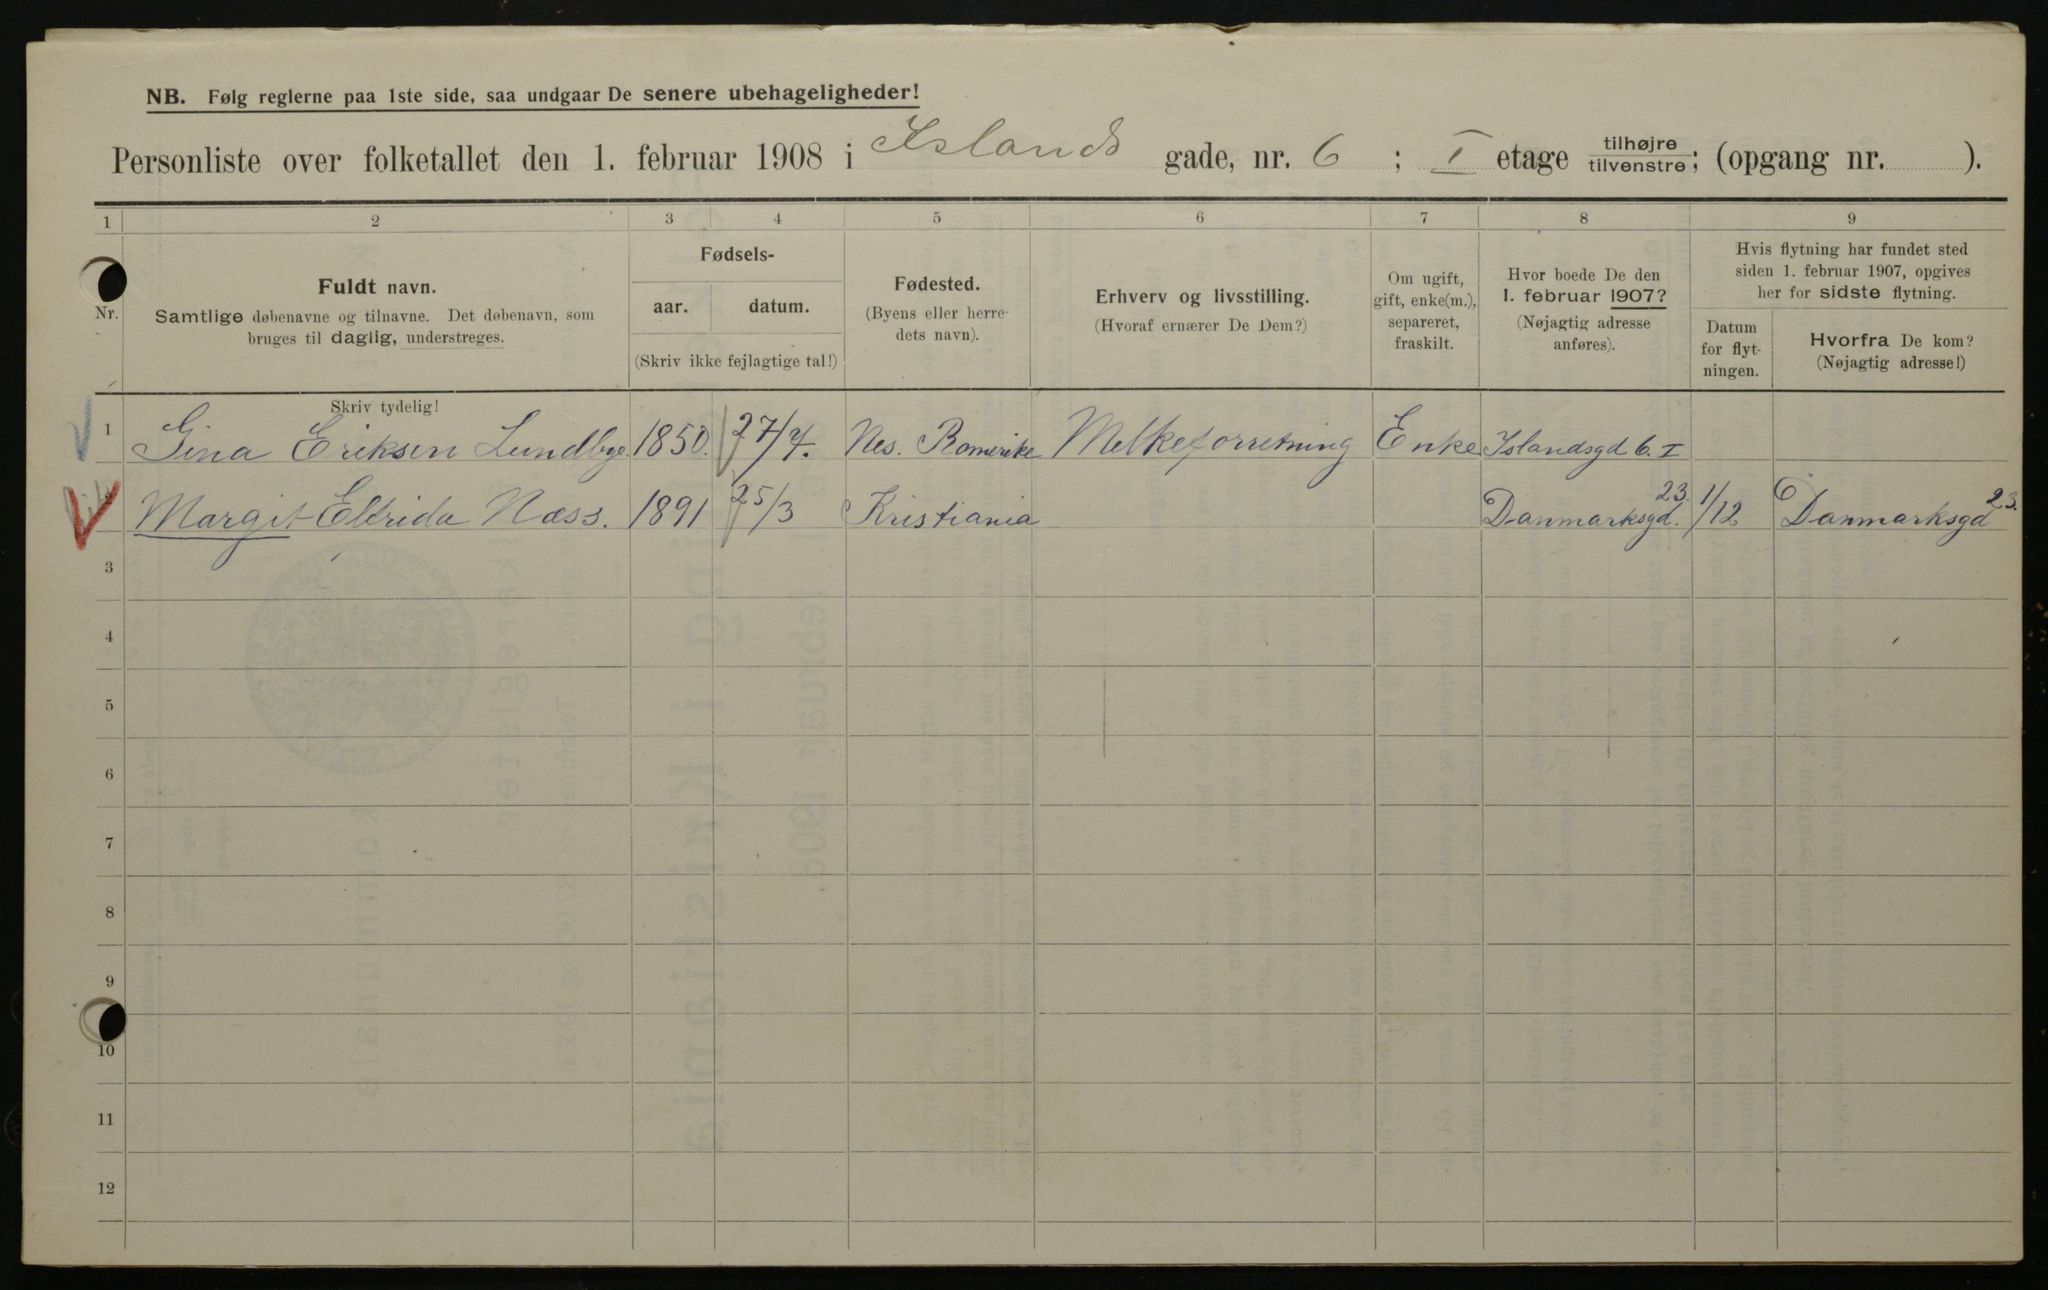 NB. Følg reglerne paa 1ste side, saa undgaar De senere ubehageligheder!
Personliste over folketallet den 1. februar 1908 i Islands gade, nr. 6 ; I etage tilhøjre/tilvenstre; (opgang nr. ).
1 2 3 4 5 6 7 8 9
Nr.
Fuldt navn.
Samtlige døbenavne og tilnavne. Det døbenavn, som
bruges til daglig, understreges.
Skriv tydelig!
Fødsels-
aar. datum.
(Skriv ikke fejlagtige tal!)
Fødested.
(Byens eller herre-
dets navn).
Erhverv og livsstilling.
(Hvoraf ernærer De Dem?)
Om ugift,
gift, enke(m.),
separeret,
fraskilt.
Hvor boede De den
1. februar 1907?
(Nøjagtig adresse
anføres).
Hvis flytning har fundet sted
siden 1. februar 1907, opgives
her for sidste flytning.
Datum
for flyt-
ningen.
Hvorfra De kom?
(Nøjagtig adresse!)
1 Gina Eriksen Lundbye 1850. 27/4. Nes. Romerike Melkeforretning Enke Islandsgd 6. I
Margit Elfrida Næss. 1891 25/3 Kristiania Danmarksgd. 23. 1/12 Danmarksgd 23.
3
4
5
6
7
8
9
10
11
12